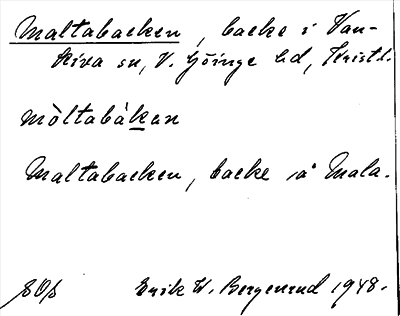 Maltabacken, backe i Van-
kiva sn, V. Göinge hd, Kristl.
mòltabákan
Maltabacken, backe i å Mala.
SOS Erik W. Bergenrud 1948.